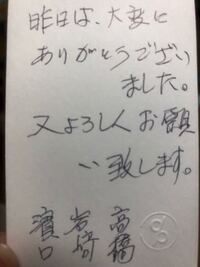 昨日は、大変に
ありがとうござい
ました。
又よろし人お願
い致します。
高橋
岩崎
濱口